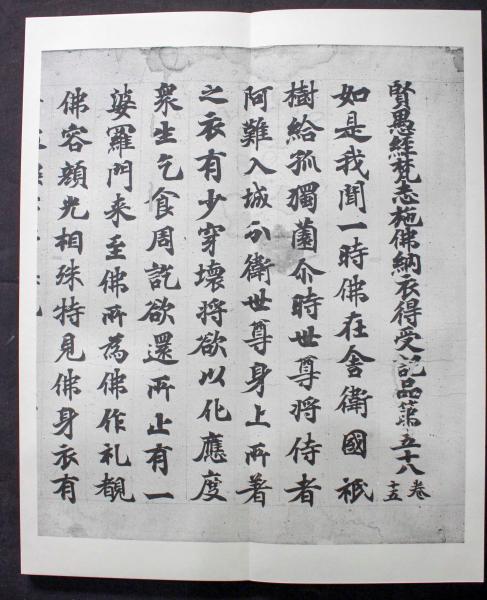 賢愚経梵志施佛納衣得受記品第五十八 卷十五
如是我聞一時佛在舍衛國祇
樹給孤獨薗尒時世尊將侍者
阿難入城分衛世尊身上所著
之衣有少穿壞將欲以化應度
衆生乞食周訖欲還所止有一
婆羅門来至佛所為佛作礼覩
佛容顔光相殊特見佛身衣有